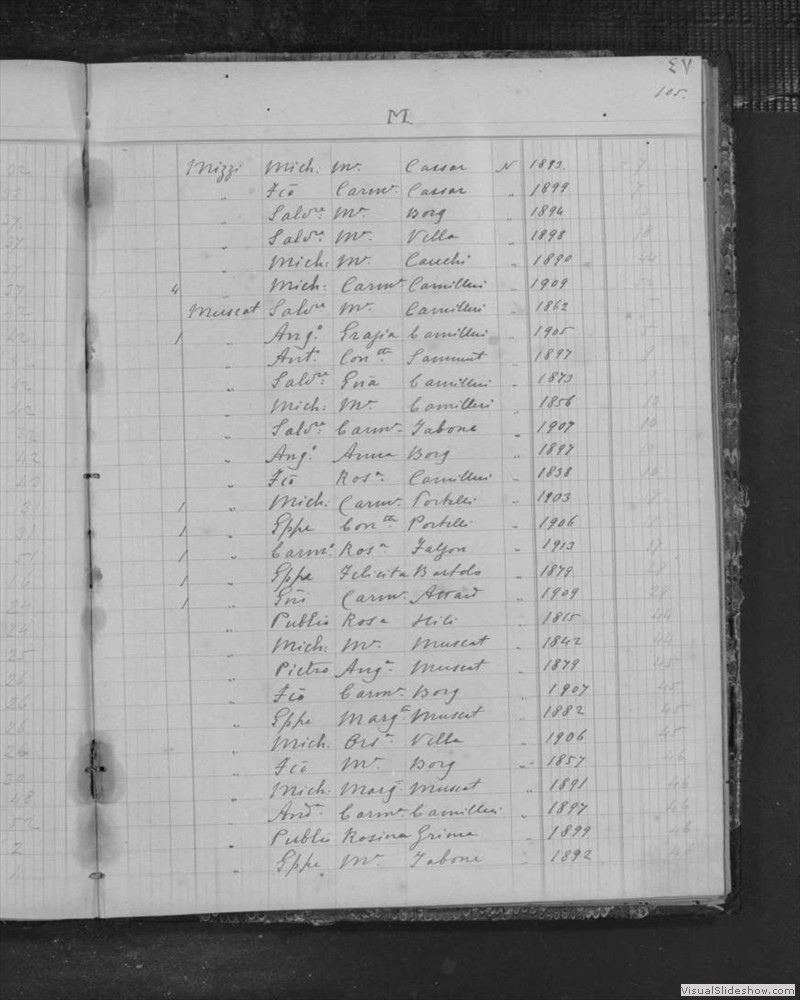 47
105.
M
Mizzi Mich: Mª. Cassar N 1893. 7
" Fcõ Carmª. Cassar " 1899 7
" Salvre. Mª. Borg " 1894
" Salvre. Mª. Vella " 1898 18
" Mich: Mª. Cauchi " 1890 44
4 " Mich: Carmª. Camilleri " 1909
Muscat Salvre Mª. Camilleri " 1862 5
1 " Angº Grazia Camilleri " 1905 5
" Antº. Contta Sammut " 1897
" Salvre. Gnã Camilleri " 1873
" Mich: Mª. Camilleri " 1856 10
" Salvre. Carmª. Tabone " 1907 10
" Angº. Anna Borg " 1897 10
" Fcõ Rosª. Camilleri " 1838 10
1 " Mich: Carmª. Portelli " 1903
1 " Gppe Contta Portelli " 1906
1 " Carmº. Rosª Falzon " 1913 17
1 " Gppe Felicita Bartolo " 1879 28
1 " Gni Carmª. Attard " 1909 28
" Publio Rosa Hili " 1815 44
" Mich: Mª. Muscat " 1842 44
" Pietro Angª. Muscat " 1879 45
" Fcõ Carmª. Borg " 1907 45
" Gppe Margta Muscat " 1882 45
" Mich: Orsª. Vella " 1906 45
" Fcõ Mª. Borg " 1857 46
" Mich: Marg. Muscat " 1891 46
" Andª. Carmª. Camilleri " 1897 46
" Publio Rosina Grima " 1899 46
" Gppe Mª. Tabone " 1892 46
VisualSlideshow.com